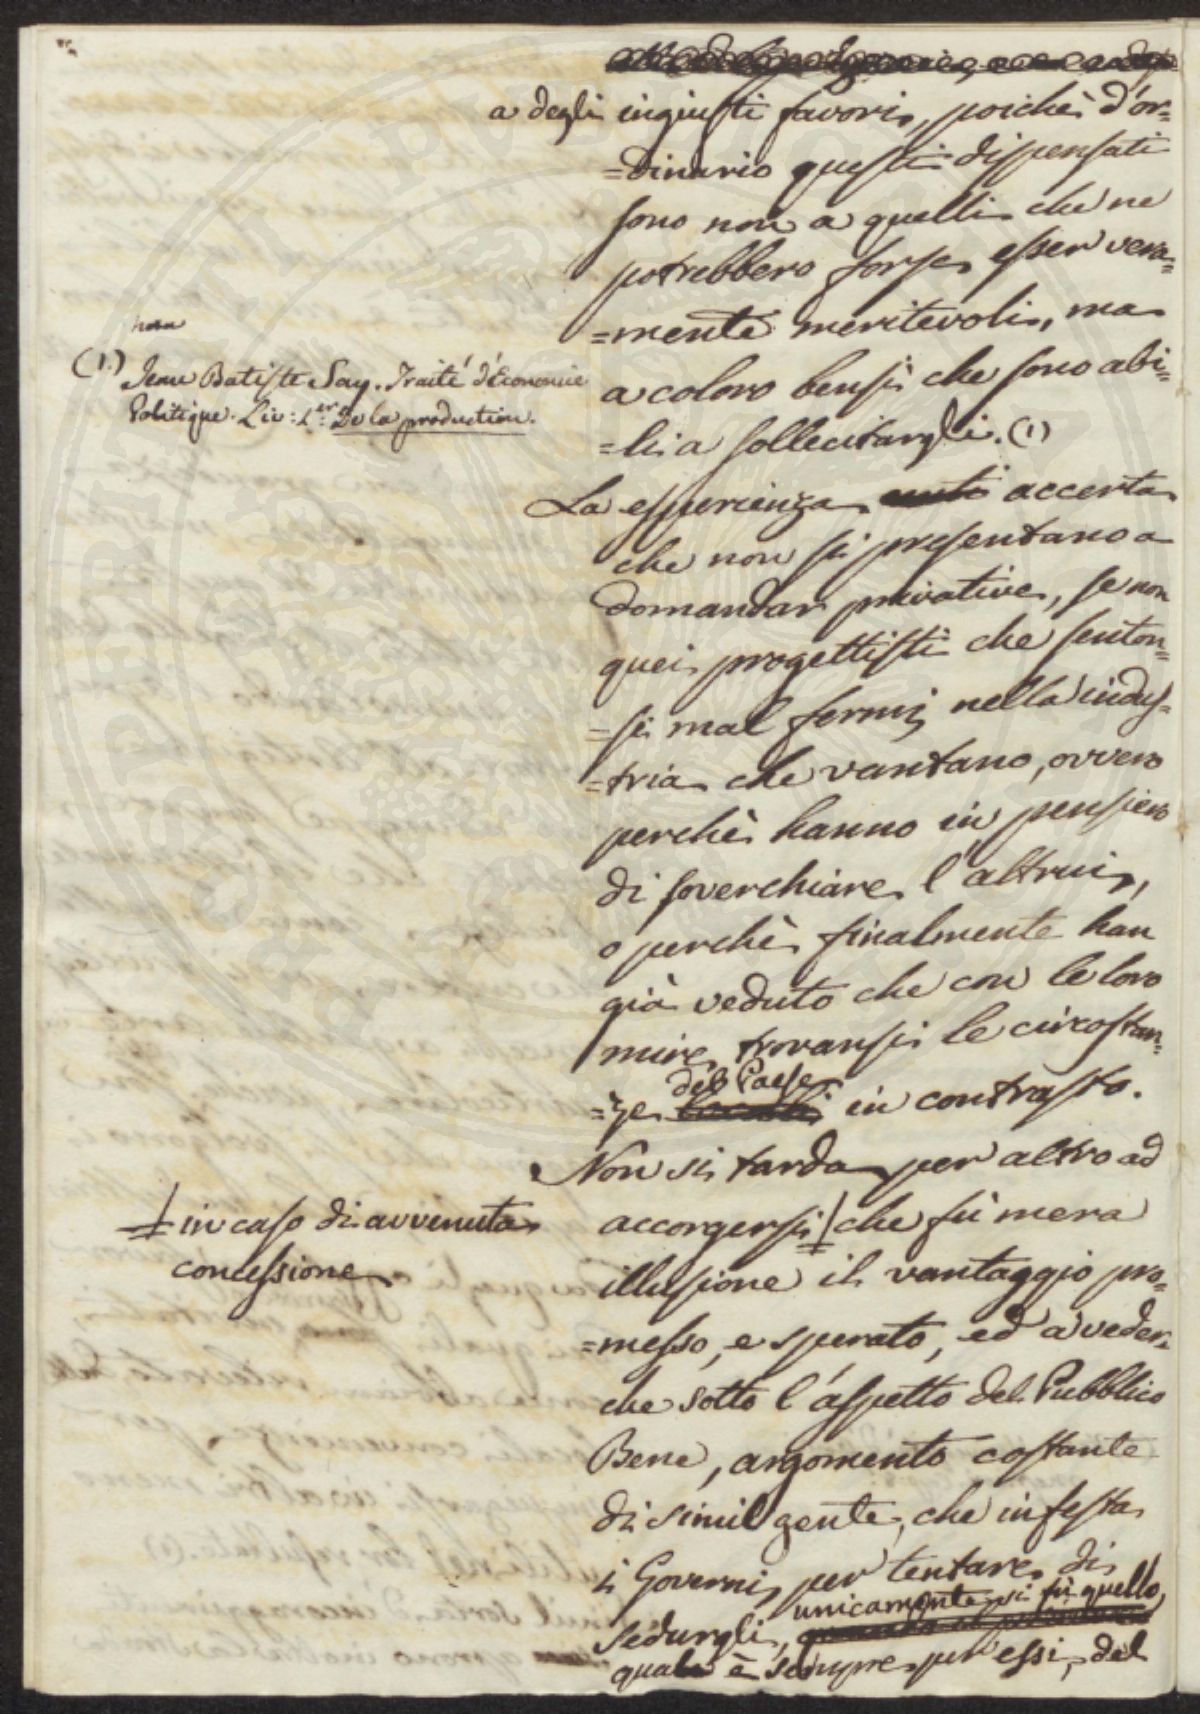 a degli ingiusti favori, poichè d'or=
=dinario questi dispensati
sono non a quelli che ne
potrebbero forse esser vera=
=mente meritevoli, ma
a coloro bensì che sono abi=
=li a sollecitargli. (1)
(1.) Jean Batiste Say. Traité d'Économie
Politique. Liv: 1.er De la production.
La esperienza accerta
che non si presentano a
domandar privative, se non
quei progettisti che senton=
=si mal fermi nella indus=
=tria che vantano, ovvero
perchè hanno in pensiero
di soverchiare l'altrui,
o perchè finalmente han
già veduto che con le loro
mire trovansi le circostan=
=ze del Paese in contrasto.
Non si tarda per altro ad
accorgersi che fù mera
in caso di avvenuta
concessione
illusione il vantaggio pro=
=messo, e sperato, ed a veder
che sotto l'aspetto del Pubblico
Bene, argomento costante
di simil gente, che infesta
i Governi per tentare di
sedurgli, unicamente vi fù quello,
quale è sempre per essi, del